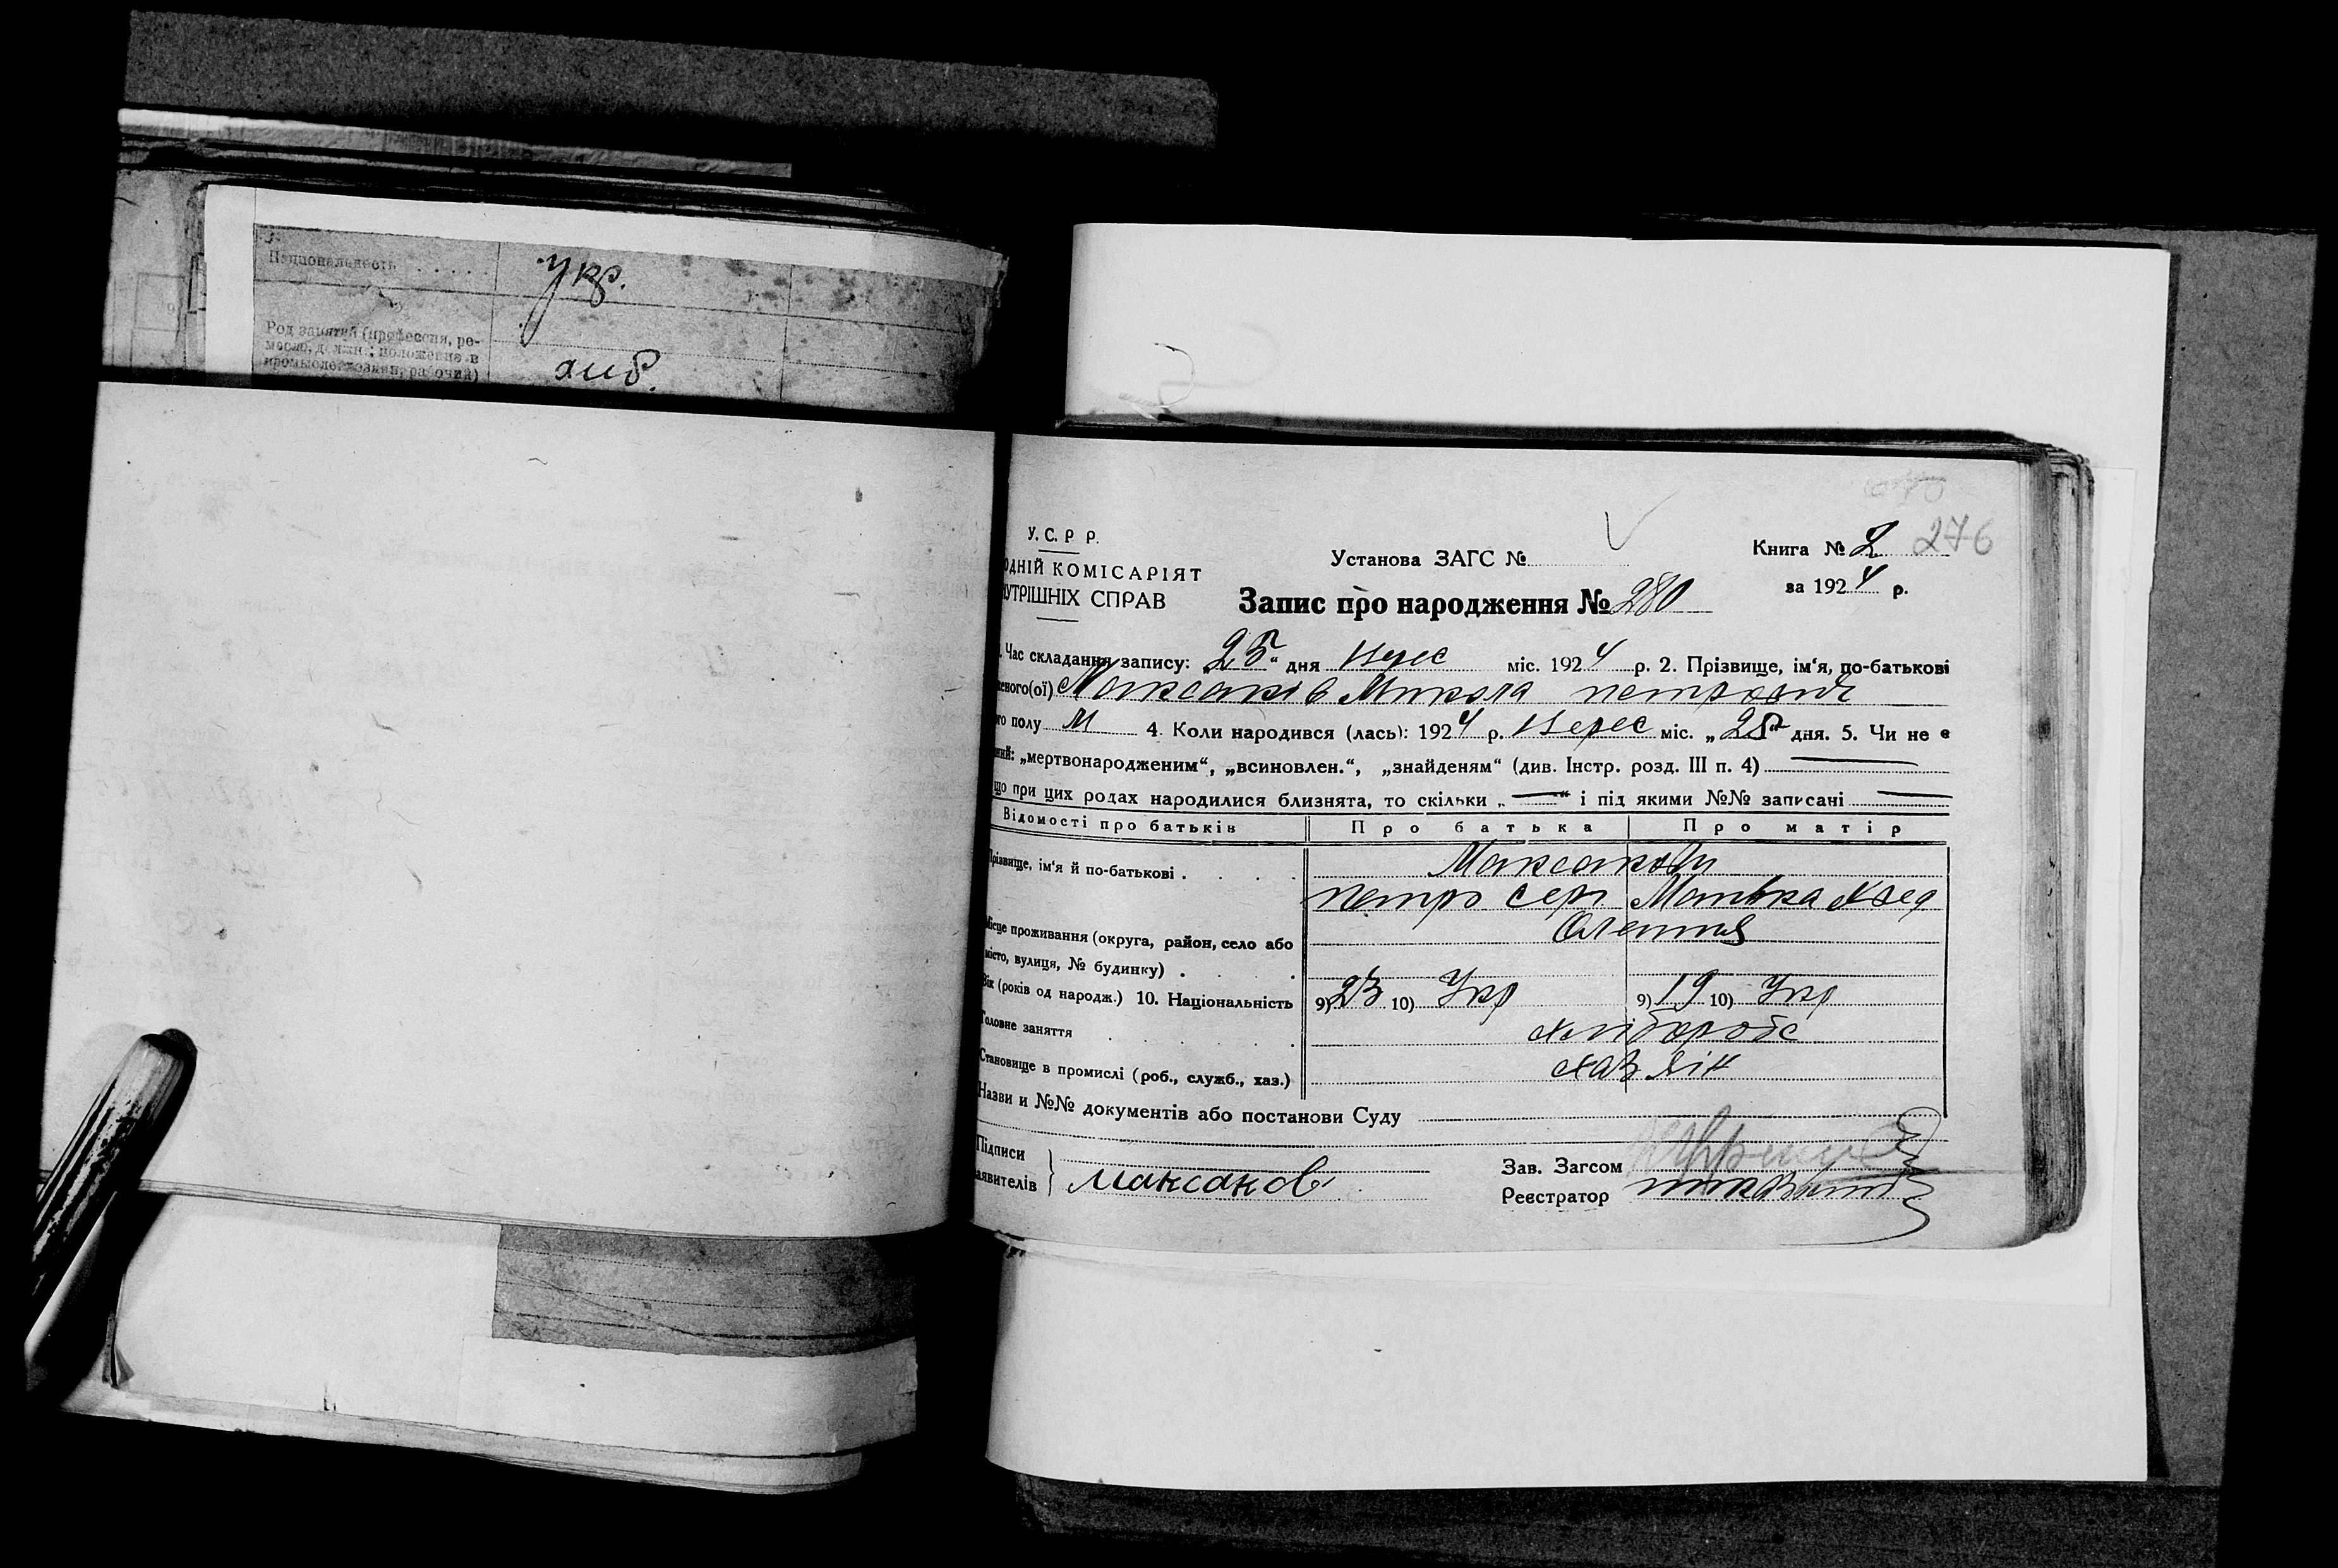 Национальность . . . . . укр.
Род занятий (профессия, ре-
месло, должн.; положение в
промысле: хозяин, рабочий) хліб.
276
У. С. Р Р.
Установа ЗАГС №
Книга № 2
одній КОМІСАРІЯТ
за 1924 р.
нутрішніх СПРАВ
Запис про народження № 280
. Час складання запису: „25“ дня Верес міс. 1924 р. 2. Прізвище, ім‘я, по-батькові
еного(ої) Максаків Микола петрович
го полу М 4. Коли народився (лась): 1924 р. Верес міс. „25“ дня. 5. Чи не є
ний: „мертвонародженим“, „всиновлен.“, „знайденям“ (див. Інстр. розд. III п. 4) —
що при цих родах народилися близнята, то скільки „—“ і під якими №№ записані —
Відомості про батьків Про батька Про матір
Прізвище, ім‘я й по-батькові . . . . Максакови
петро Серг
Місце проживання (округа, район, село або
місто, вулиця, № будинку) . .
Вік (років од народж.) 10. Національність 9) 23 10) Укр 9) 19 10) Укр
Головне заняття . . . . хлібороб
Становище в промислі (роб., служб., хаз.)
Назви и №№ документів або постанови Суду
Підписи
аявителів } Максаков
Зав. Загсом
Реєстратор